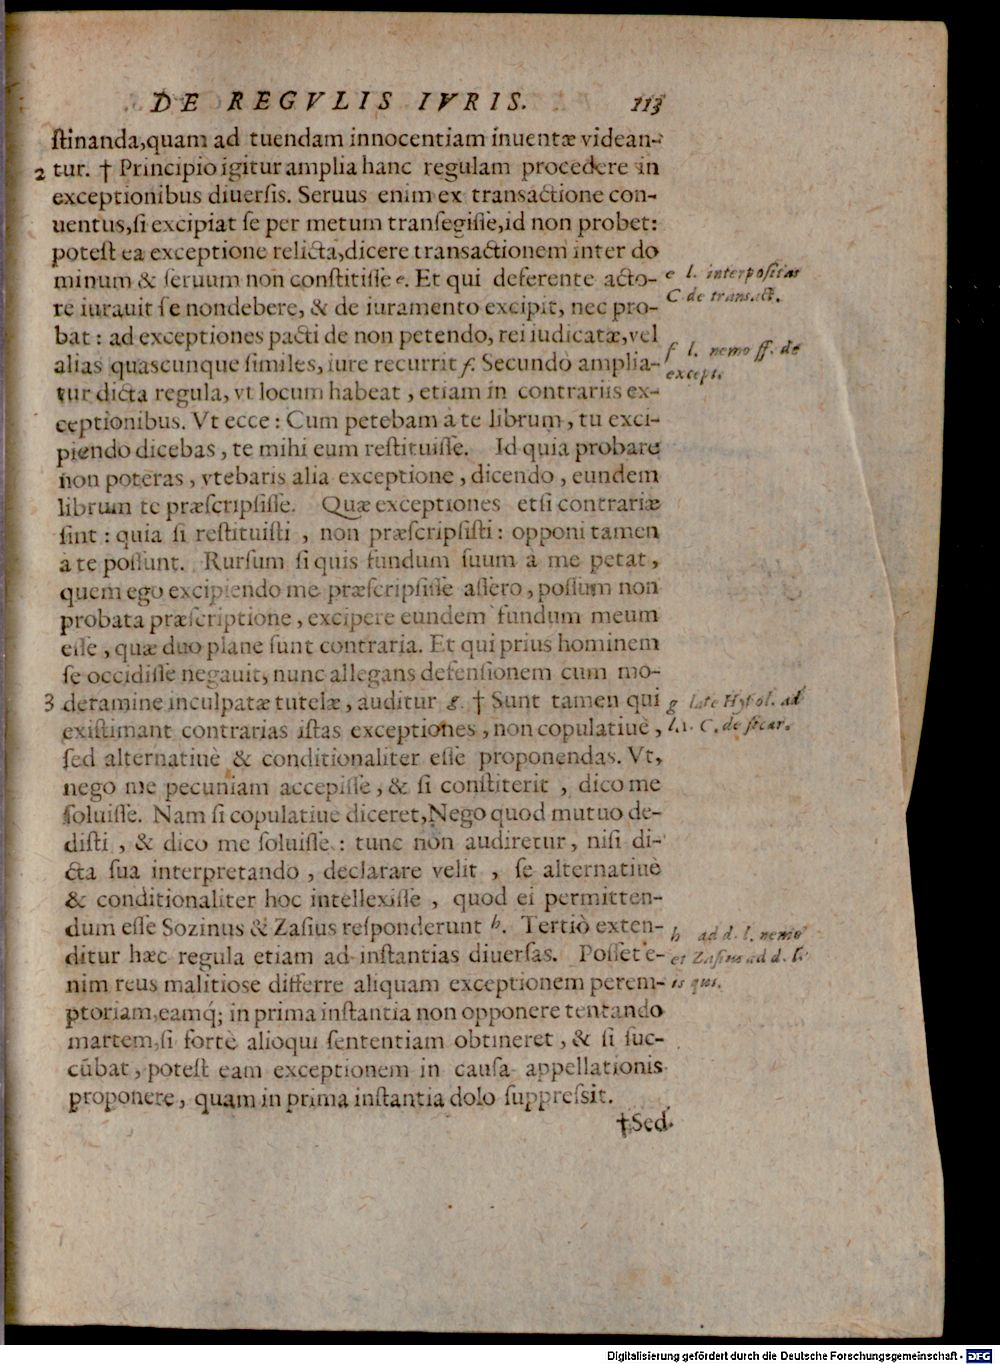 DE REGVLIS IVRIS. 113
ſtinanda,quam ad tuendam innocentiam inuentæ videan-
2 tur. † Principio igitur amplia hanc regulam procedere in
exceptionibus diuerſis. Seruus enim ex transactione con-
uentus,ſi excipiat ſe per metum tranſegiſſe,id non probet:
poteſt ea exceptione relicta,dicere transactionem inter do
minum & ſeruum non conſtitiſſe e. Et qui deferente acto-
re iurauit ſe non debere, & de iuramento excipit, nec pro-
bat: ad exceptiones pacti de non petendo, rei iudicatæ,vel
alias quascunque ſimiles, iure recurrit f. Secundò amplia-
tur dicta regula, vt locum habeat, etiam in contrariis ex-
ceptionibus. Vt ecce: Cum petebam à te librum, tu exci-
piendo dicebas, te mihi eum reſtituiſſe. Id quia probare
non poteras, vtebaris alia exceptione, dicendo, eundem
librum te præſcripſiſſe. Quæ exceptiones etſi contrariæ
ſint: quia ſi reſtituiſti, non præſcripſiſti: opponi tamen
à te poſſunt. Rurſum ſi quis fundum ſuum à me petat,
quem ego excipiendo me præſcripſiſſe aſſero, poſſum non
probata præſcriptione, excipere eundem fundum meum
eſſe, quæ duo plane ſunt contraria. Et qui prius hominem
ſe occidiſſe negauit, nunc allegans defenſionem cum mo-
3 deramine inculpatæ tutelæ, auditur g. † Sunt tamen qui
exiſtimant contrarias iſtas exceptiones, non copulatiuè,
ſed alternatiuè & conditionaliter eſſe proponendas. Vt,
nego me pecuniam accepiſſe, & ſi conſtiterit, dico me
ſoluiſſe. Nam ſi copulatiue diceret,Nego quod mutuo de-
diſti, & dico me ſoluiſſe: tunc non audiretur, niſi di-
cta ſua interpretando, declarare velit, ſe alternatiuè
& conditionaliter hoc intellexiſſe, quod ei permitten-
dum eſſe Sozinus & Zaſius reſponderunt h. Tertiò exten-
ditur hæc regula etiam ad inſtantias diuerſas. Poſſet e-
nim reus malitiose differre aliquam exceptionem perem-
ptoriam,eamq́; in prima inſtantia non opponere tentando
martem,ſi fortè alioqui ſententiam obtineret, & ſi ſuc-
cūbat, poteſt eam exceptionem in cauſa appellationis
proponere, quam in prima inſtantia dolo ſuppreſsit.
†Sed
e l. interpoſitas
C de transact.
f l. nemo ff. de
except.
g late Hypol. ad
l.1. C. de ſicar.
h ad d. l. nemo
et Zaſius ad d. l.
is qui.
Digitalisierung gefördert durch die Deutsche Forschungsgemeinschaft - DFG